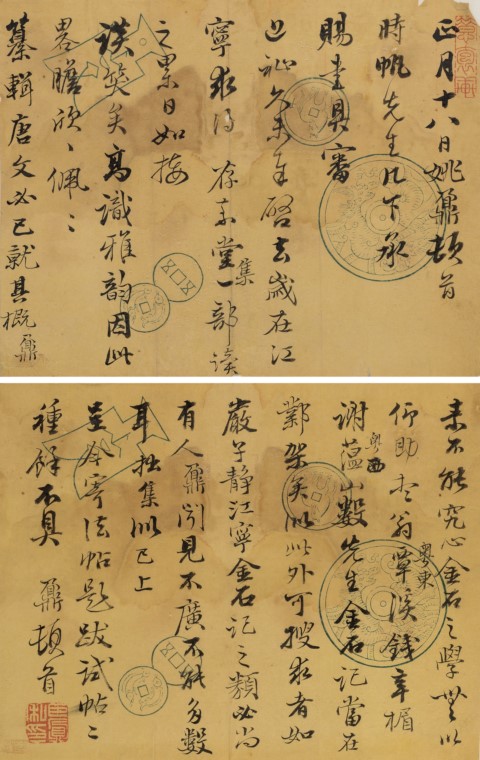 正月十八日姚鼐頓首
時帆先生几下承
賜書具審
近祉久未奉啓去歲在江
寧求得存素堂集一部讀
之累日如接
談笑矣高識雅韻因此
畧瞻欣〻佩〻
纂輯唐文必已就其概鼐
素不能究心金石之學無以
仰助翁覃溪粵東錢辛楣
謝蘊山粵西數先生金石記當在
鄴架矣似此外可搜求者如
嚴子靜江寧金石記之類必尚
有人鼐聞見不廣不能多數
耳拙集似已上
呈今寄法帖題跋試帖二
種餘不具 鼐頓首